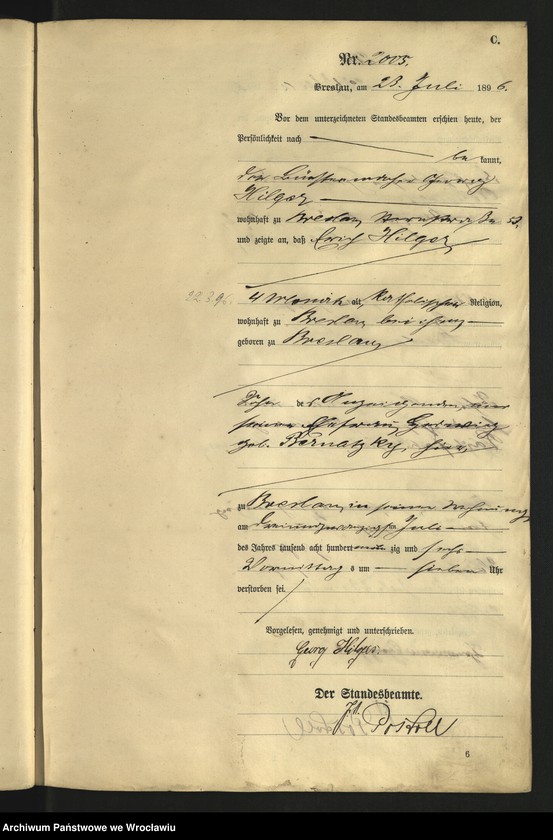 C.
Nr. 2005.
Breslau, am 23. Juli 1896.
Vor dem unterzeichneten Standesbeamten erschien heute, der
Persönlichkeit nach
be kannt,
der Georg
Hilger
wohnhaft zu Breslau, 52,
und zeigte an, daß Erich Hilger
4 Monate alt, katholischer Religion,
wohnhaft zu Breslau bei ihm
geboren zu Breslau
Sohn des Anzeigenden und
seiner Ehefrau Hedwig
geb. Bernatzky, hier
zu Breslau, in seiner Wohnung
am dreiundzwanzigsten Juli
des Jahres tausend acht hundert neunzig und sechs
Vormittags um sieben Uhr
verstorben sei.
Vorgelesen, genehmigt und unterschrieben.
Georg Hilger.
Der Standesbeamte.
6
Archiwum Państwowe we Wrocławiu